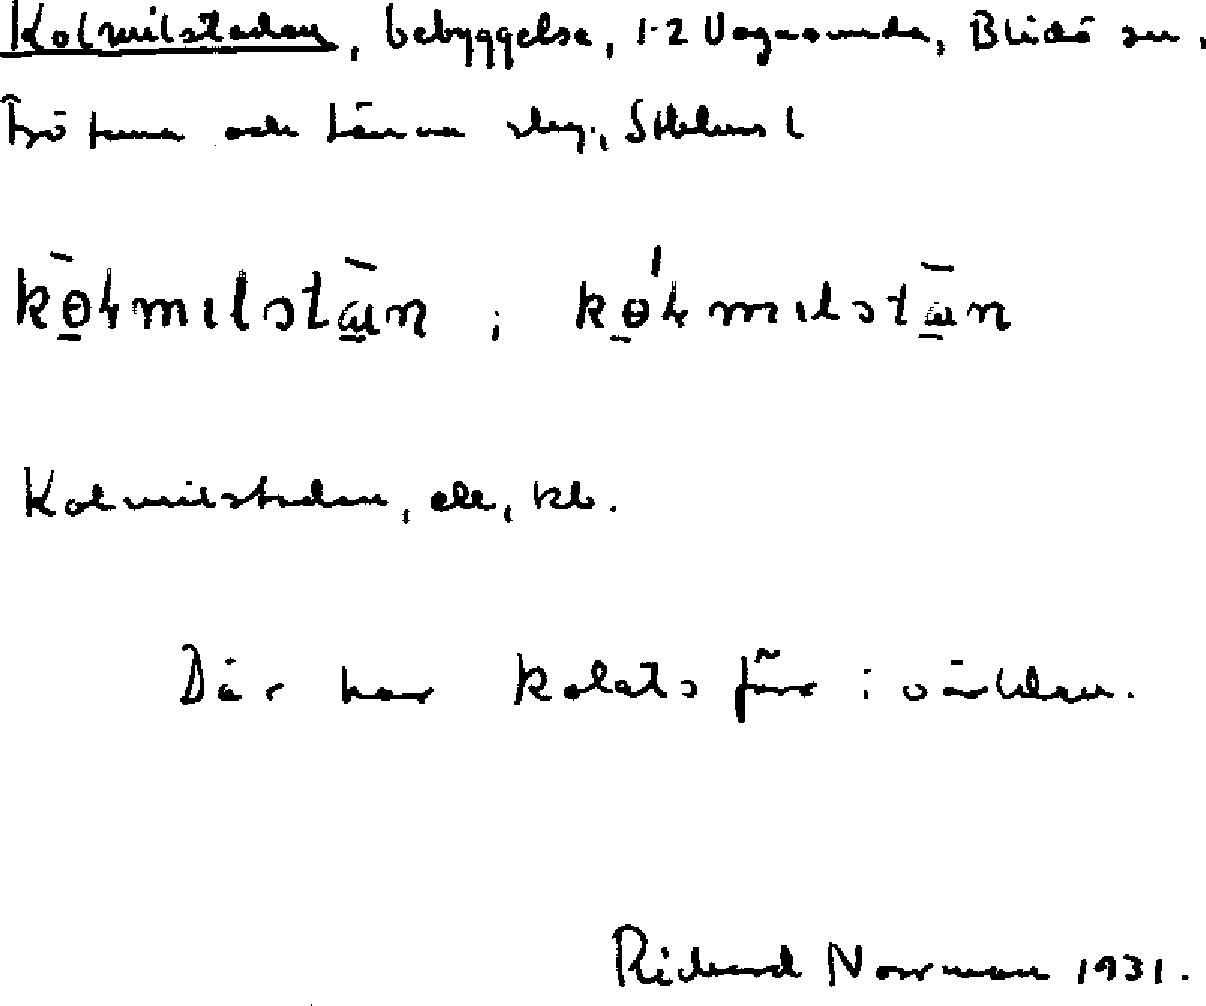 Kolmilstaden, bebyggelse, 1-2 Vagnsunda, Blidö sn,
Frötuna och Länna skg., Sthlms l
Kolmilstaden, ell, kb.
Där har kolats förr i världen.
Richard Norrman 1931.